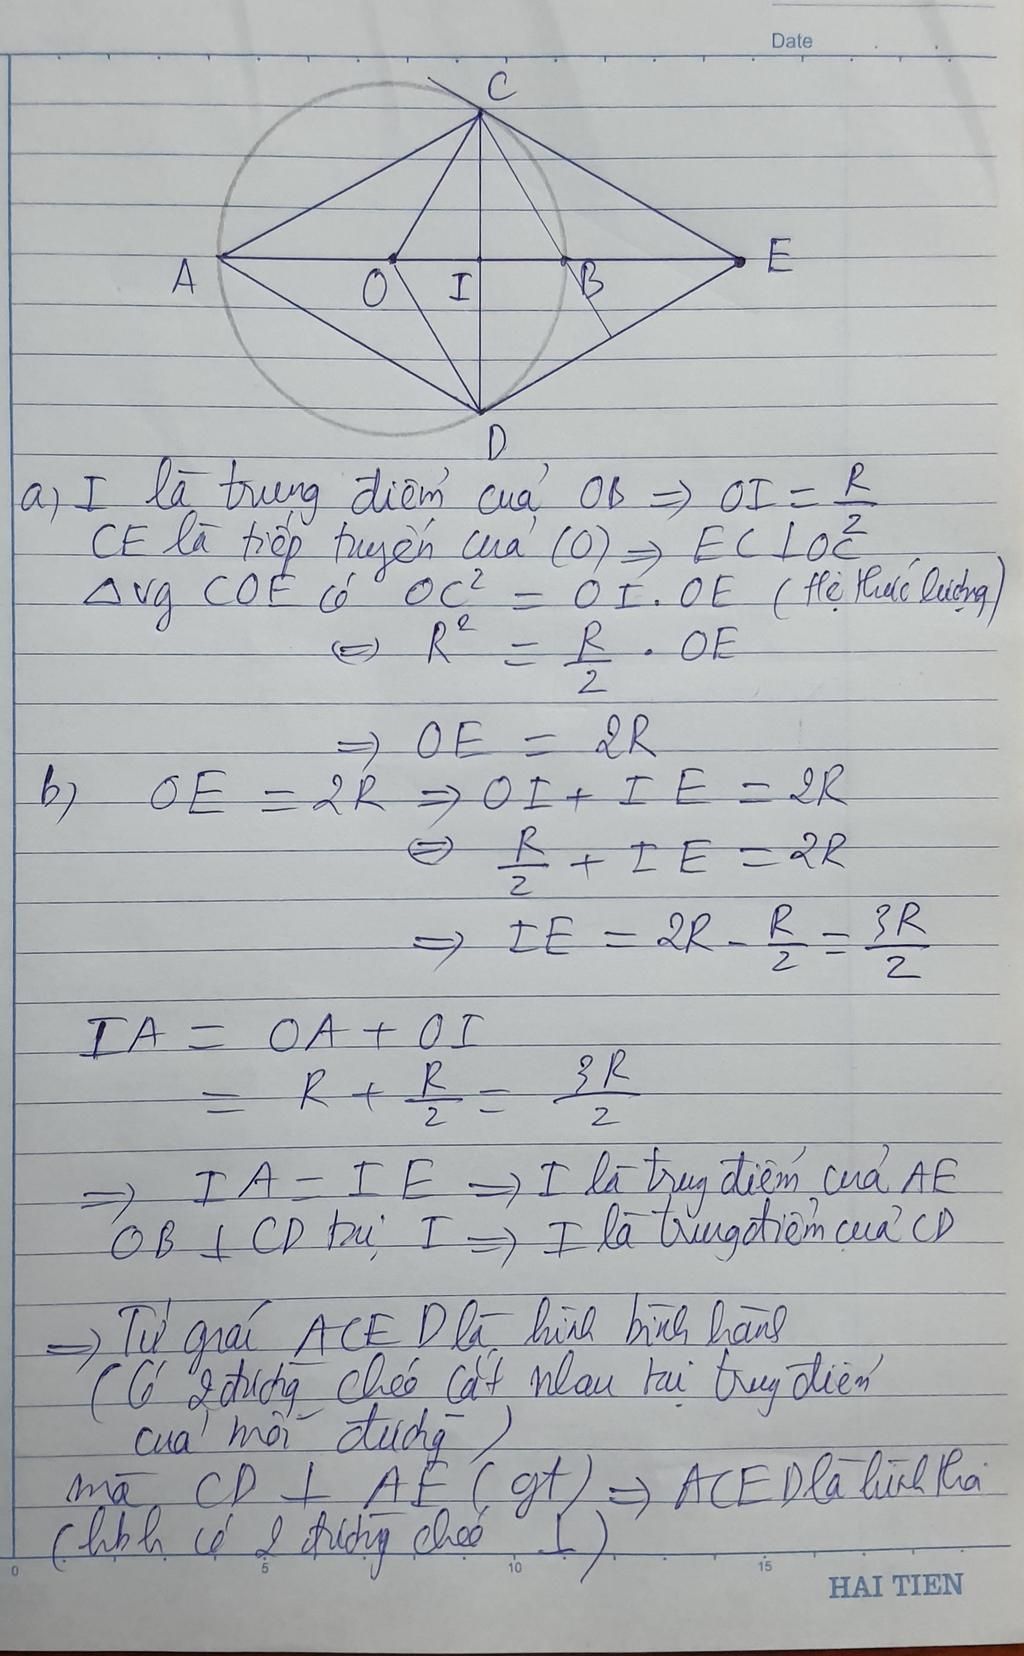 Date
C
A
O
I
B
E
D
a) I là trung điểm của OB => OI = R/2
CE là tiếp tuyến của (O) => EC ⊥ OC
Δvg COE có OC² = OI . OE (Hệ thức lượng)
<=> R² = R/2 . OE
=> OE = 2R
b) OE = 2R => OI + IE = 2R
<=> R/2 + IE = 2R
=> IE = 2R - R/2 = 3R/2
IA = OA + OI
= R + R/2 = 3R/2
=> IA = IE => I là trug điểm của AE
OB ⊥ CD tại I => I là trung điểm của CD
=> Tứ giác ACED là hình bình hành
(Có 2 đường chéo cắt nhau tại trug điểm
của mỗi đường)
mà CD ⊥ AE (gt) => ACED là hình thoi
(hbh có 2 đường chéo ⊥)
0 5 10 15
HAI TIEN